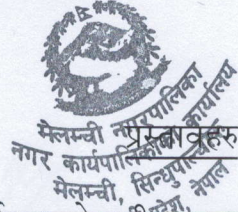 मेलम्ची नगरपालिका
नगर कार्यपालिकाको कार्यालय
मेलम्ची, सिन्धुपाल्चोक
प्रदेश, नेपाल
प्रस्तावहरु